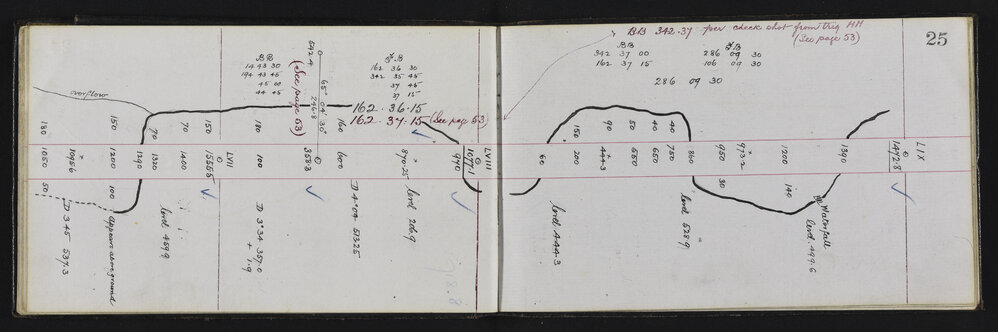 BB 342.37 per check shot from trig HH
(See page 53)
25
BB
342 37 00
162 37 15
FB
286 09 30
106 09 30
286 09 30
BB
14 43 30
194 43 45
45 00
44 45
FB
162 36 30
342 35 45
37 45
37 15
(See page 53)
592.4
65° 04' 30"
246.8
162.36.15
162.37.15 (See page 53)
overflow
180
150
70
70
150
180
160
1050
1095.6
1200
1290
1320
1400
1555.5
LVII
100
355.8
600
870.25
940
1077.1
LVIII
50
100
D 3.45 537.3
appears above ground
level 459.9
D 3°34 357.0
+ 1.9
D 4°04 513.25
level 206.9
60
200
444.3
550
650
750
860
950
973.2
1200
1390
1472.8
LIX
150
90
50
40
40
30
140
level 444.3
level 528.9
Waterfall
level 499.6